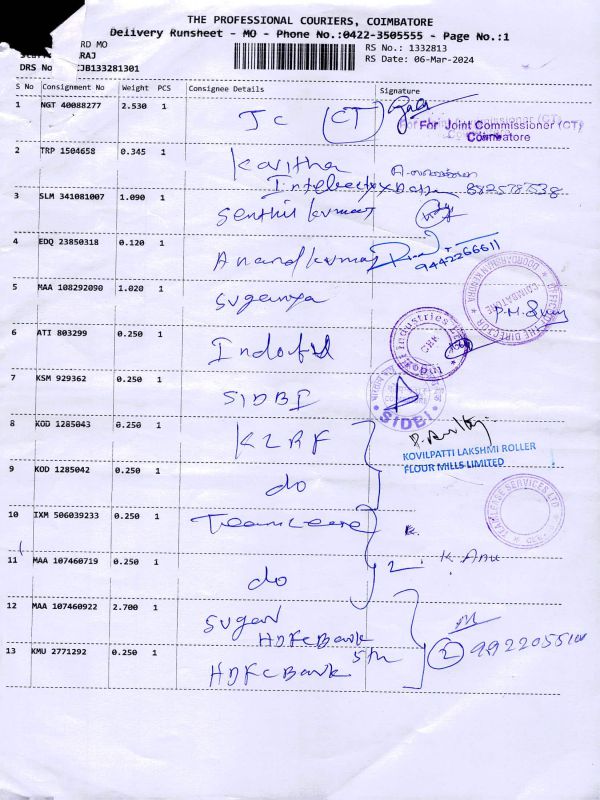 THE PROFESSIONAL COURIERS, COIMBATORE
Delivery Runsheet - MO - Phone No.:0422-3505555 - Page No.:1
RD MO
RS No.: 1332813
RAJ
RS Date: 06-Mar-2024
DRS No CJB133281301
S No Consignment No Weight PCS Consignee Details Signature
1 NGT 40088277 2.530 1 JC (CT)
For Joint Commissioner (CT)
Coimbatore
2 TRP 1504658 0.345 1 Kavitha
3 SLM 341081007 1.090 1 Senthil Kumar
4 EDQ 23850318 0.120 1 Anand Kumar
9442266611
5 MAA 108292090 1.020 1 Suganya
OFFICE OF THE DIRECTOR * DOORDARSHAN KENDRA
COIMBATORE
6 ATI 803299 0.250 1
CBE
7 KSM 929362 0.250 1 SIDBI
SIDBI
8 KOD 1285043 0.250 1 KLRF
KOVILPATTI LAKSHMI ROLLER
FLOUR MILLS LIMITED
9 KOD 1285042 0.250 1 do
10 IXM 506039233 0.250 1 Teamlease
TEAMLEASE SERVICES LTD
11 MAA 107460719 0.250 1 do 2. K. Anu
12 MAA 107460922 2.700 1 Sugan
HDFC Bank
13 KMU 2771292 0.250 1 HDFC Bank 5th
2